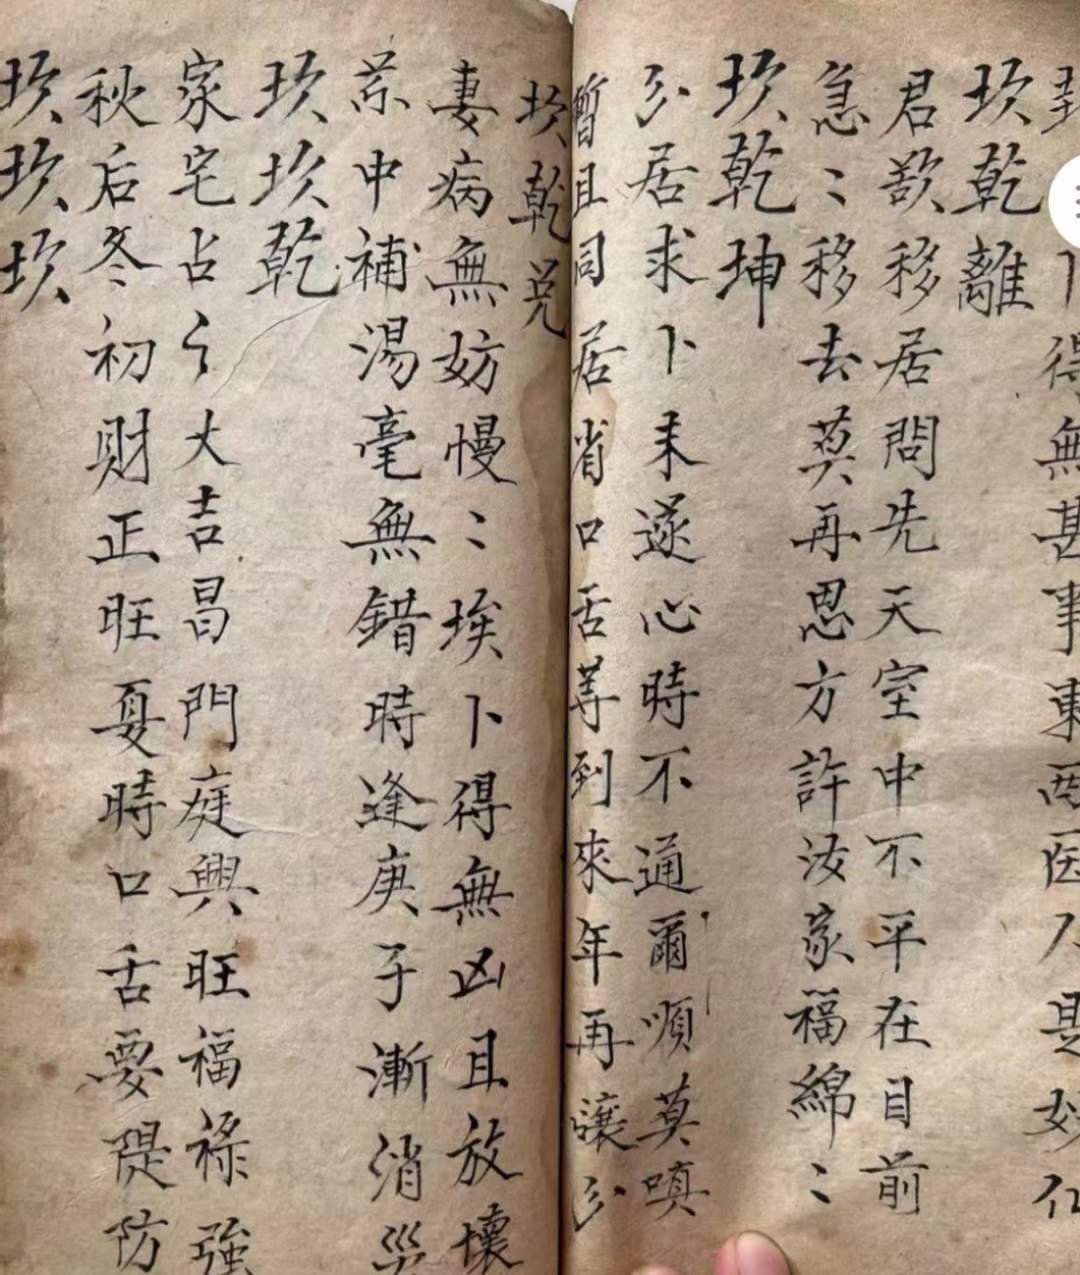 卜得無甚事東西医人是妙仙
坎乾離
君欲移居問先天室中不平在目前
急〻移去莫再思方許汝家福綿〻
坎乾坤
分居求卜未遂心時不通爾順莫嗔
暫且同居省口舌等到來年再讓分
坎乾兑
妻病無妨慢〻挨卜得無凶且放懷
茶中補湯毫無錯時逢庚子漸消災
坎坎乾
家宅占之大吉昌門庭興旺福祿強
秋后冬初財正旺夏時口舌要隄防
坎坎坎